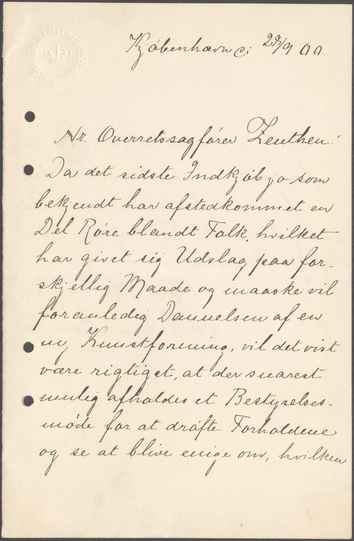 Kjøbenhavn C: 29/9 00
Hr. Overretssagfører Zeuthen!
Da det sidste Indkjøb jo som
bekjendt har afstedkommet en
Del Røre blandt Folk, hvilket
har givet sig Udslag paa for-
skjellig Maade og maaske vil
foranledig Dannelsen af en
ny Kunstforening, vil det vist
være rigtigst, at der snarest
mulig afholdes et Bestyrelses-
møde for at drøfte Forholdene
og se at blive enige om, hvilken